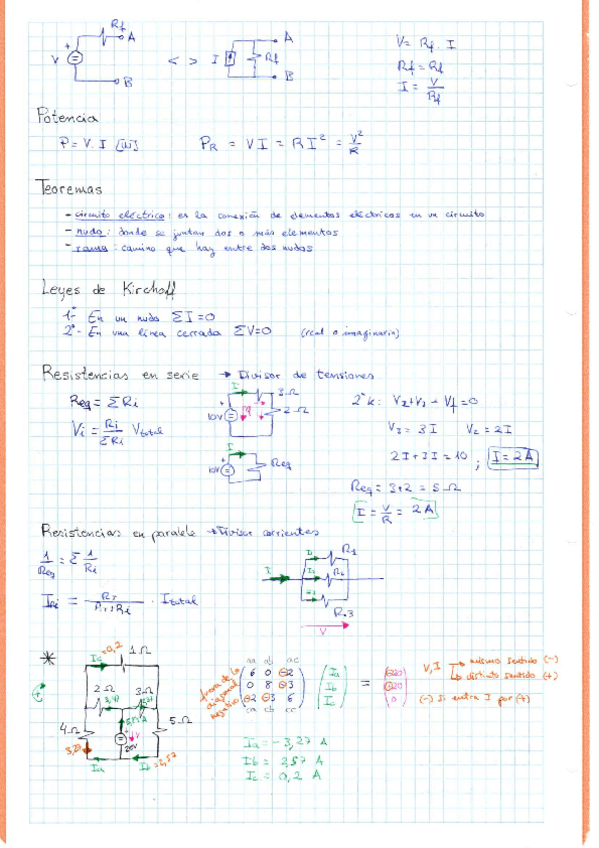 Rf
A
V
B
< >
I
A
Rf
B
V = Rf . I
Rf = Rf
I = V/Rf
Potencia
P = V . I [W]
PR = VI = RI² = V²/R
Teoremas
- circuito eléctrico: es la conexión de elementos eléctricos en un circuito
- nudo: donde se juntan dos o más elementos
- rama: camino que hay entre dos nudos
Leyes de Kirchoff
1º- En un nudo ΣI=0
2º- En una línea cerrada ΣV=0 (real o imaginaria)
Resistencias en serie → Divisor de tensiones
Req = ΣRi
Vi = Ri/ΣRi Vtotal
I
3Ω
10V
2Ω
I
10V
Req
2ºk: V2+V3-Vf=0
V3 = 3I V2 = 2I
2I+3I=10 ; I=2A
Req = 3+2 = 5Ω
I = V/R = 2A
Resistencias en paralelo → Divisor corrientes
1/Req = Σ 1/Ri
. Itotal
I
I1
R1
I2
R2
I3
R3
V
*
Ic=0,2
1Ω
2Ω
3Ω
4Ω
5Ω
20V
V
3,27
Ia
Ib=2,57
fuera de la diagonal negativo
aa ab ac
6 0 -2
0 8 -3
-2 -3 6
ca cb cc
Ia
Ib
Ic
=
-20
-20
0
V, I
mismo sentido (-)
distinto sentido (+)
(-) Si entra I por (+)
Ia = -3,27 A
Ib = 2,57 A
Ic = 0,2 A